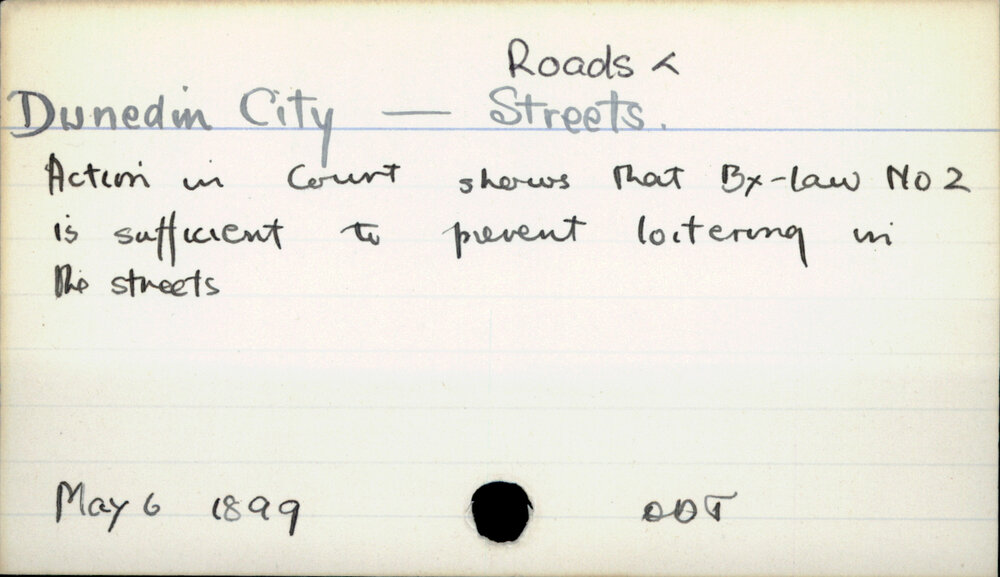 Roads &
Dunedin City — Streets.
Action in Court shows that By-law No 2
is sufficient to prevent loitering in
the streets
May 6 1899 ODT